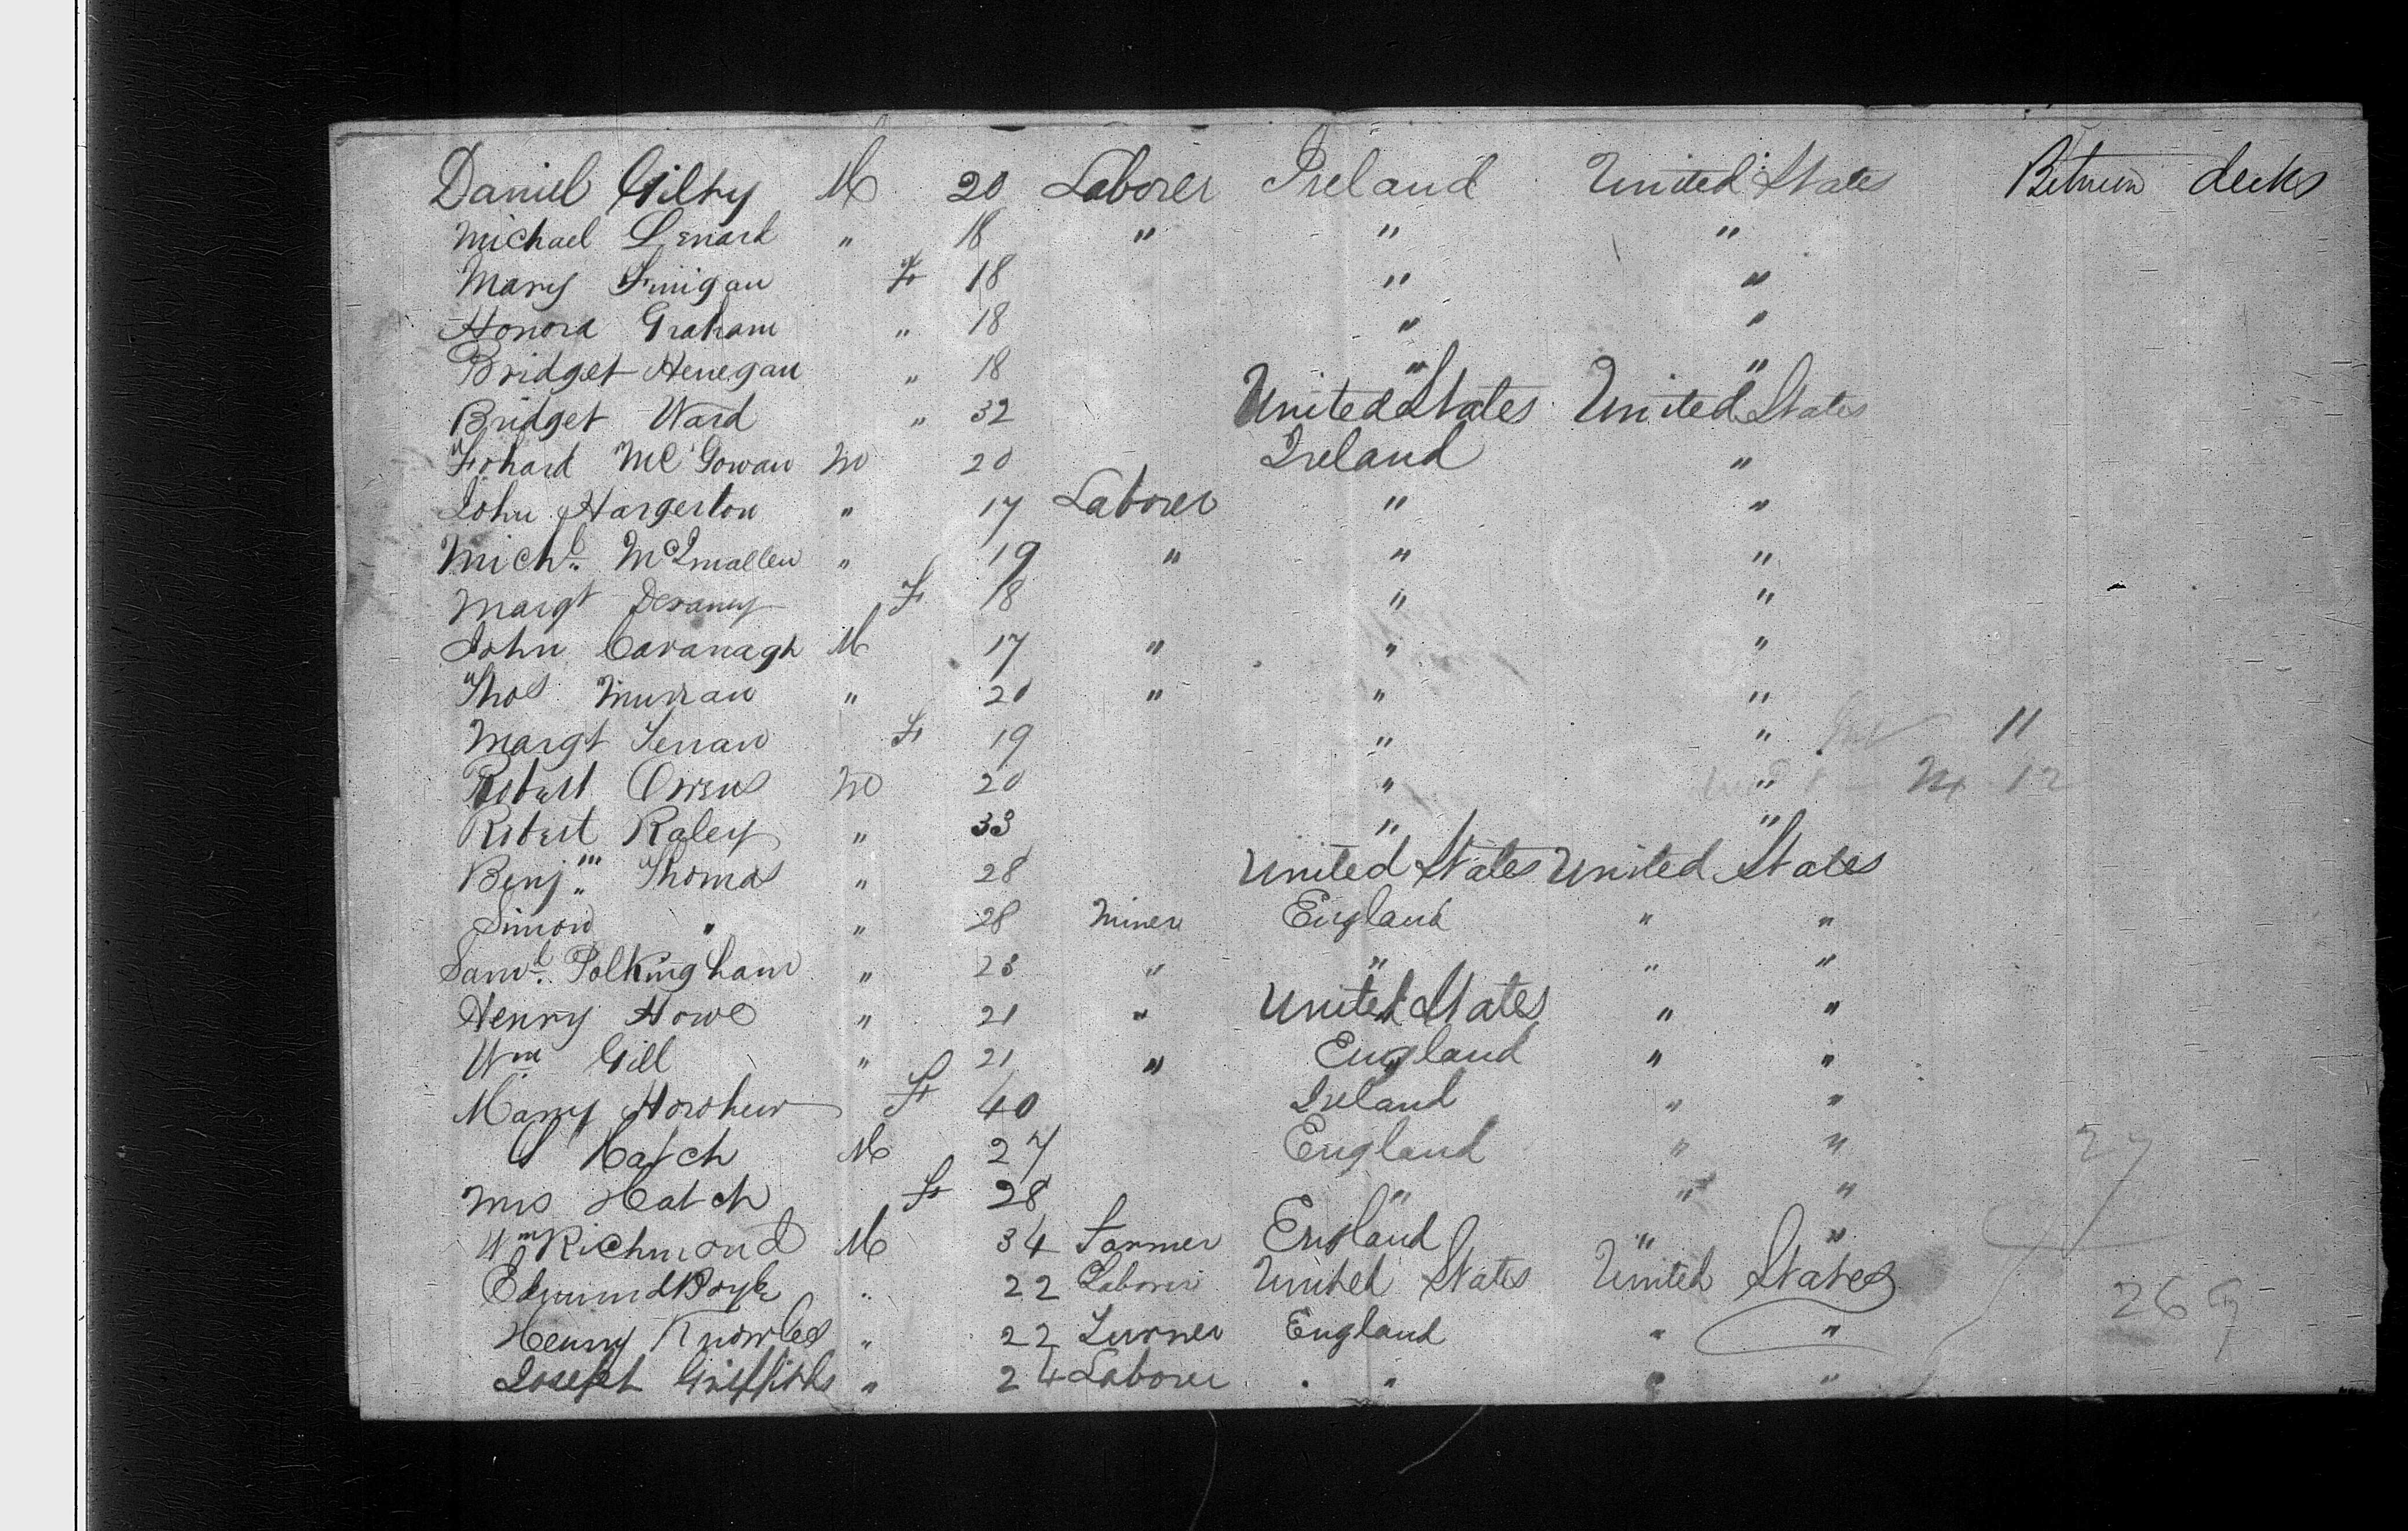 Daniel Gilhy M 20 Laborer Ireland United States Between decks
Michael Lenard " 18 " " "
Mary Finigan F 18 " "
Honora Graham " 18 " "
Bridget Henegan " 18 " "
Bridget Ward " 32 United States United States
McGowan M 20 Ireland "
John Hargerton " 17 Laborer " "
Michl. " 19 " " "
Margt F 18 " "
John Cavanagh M 17 " " "
Thos Murran " 20 " " "
Margt F 19 " " 11
Robert Owens M 20 " " 12
Robert Raley " 33 " "
Benjm. Thomas " 28 United States United States
Simon " " 28 Miner England " "
Saml. Polkingham " 23 " " " "
Henry Howe " 21 " United States " "
Wm Gill " 21 " England " "
Mary F 40 Ireland " "
Hatch M 27 England " " 27
Mrs Hatch F 28 " " "
Wm Richmond M 34 Farmer England " "
Edmund Boyle " 22 Laborer United States United States 269
Henry Knowles " 22 Turner England " "
Joseph Griffiths " 24 Laborer " " "